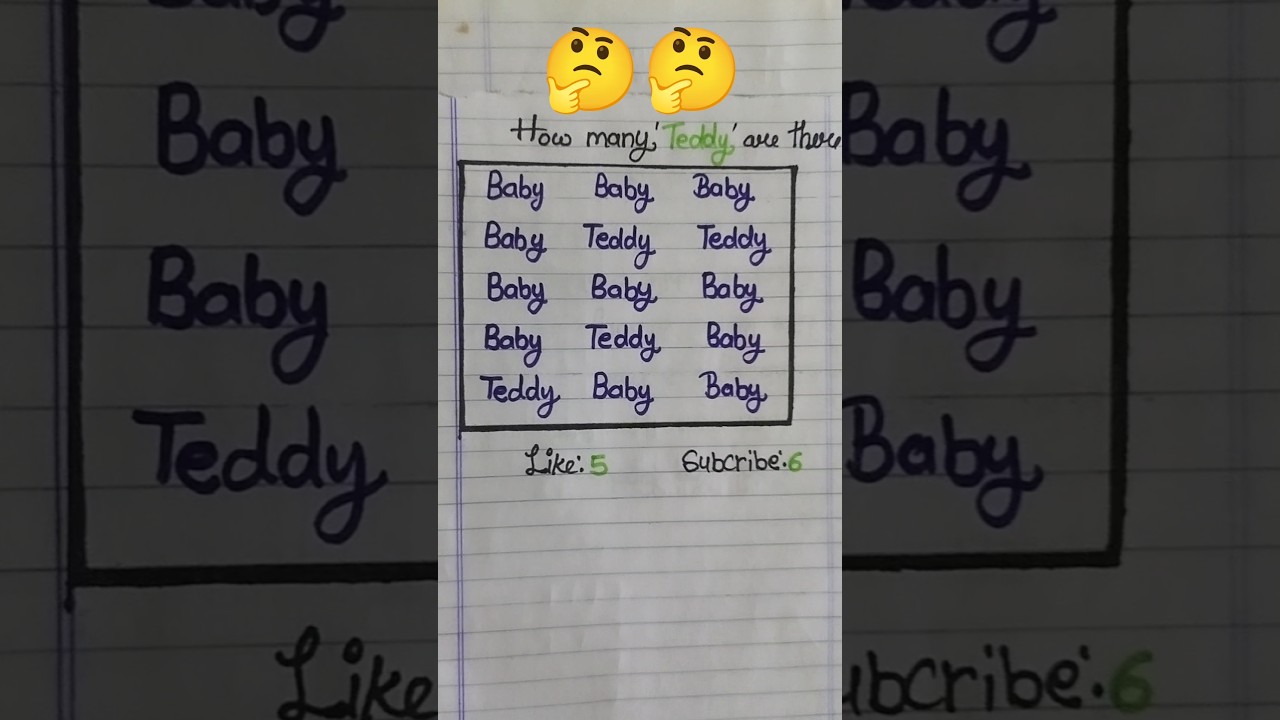 How many 'Teddy' are there
Baby Baby Baby
Baby Teddy Teddy
Baby Baby Baby
Baby Teddy Baby
Teddy Baby Baby
Like: 5 Subcribe: 6